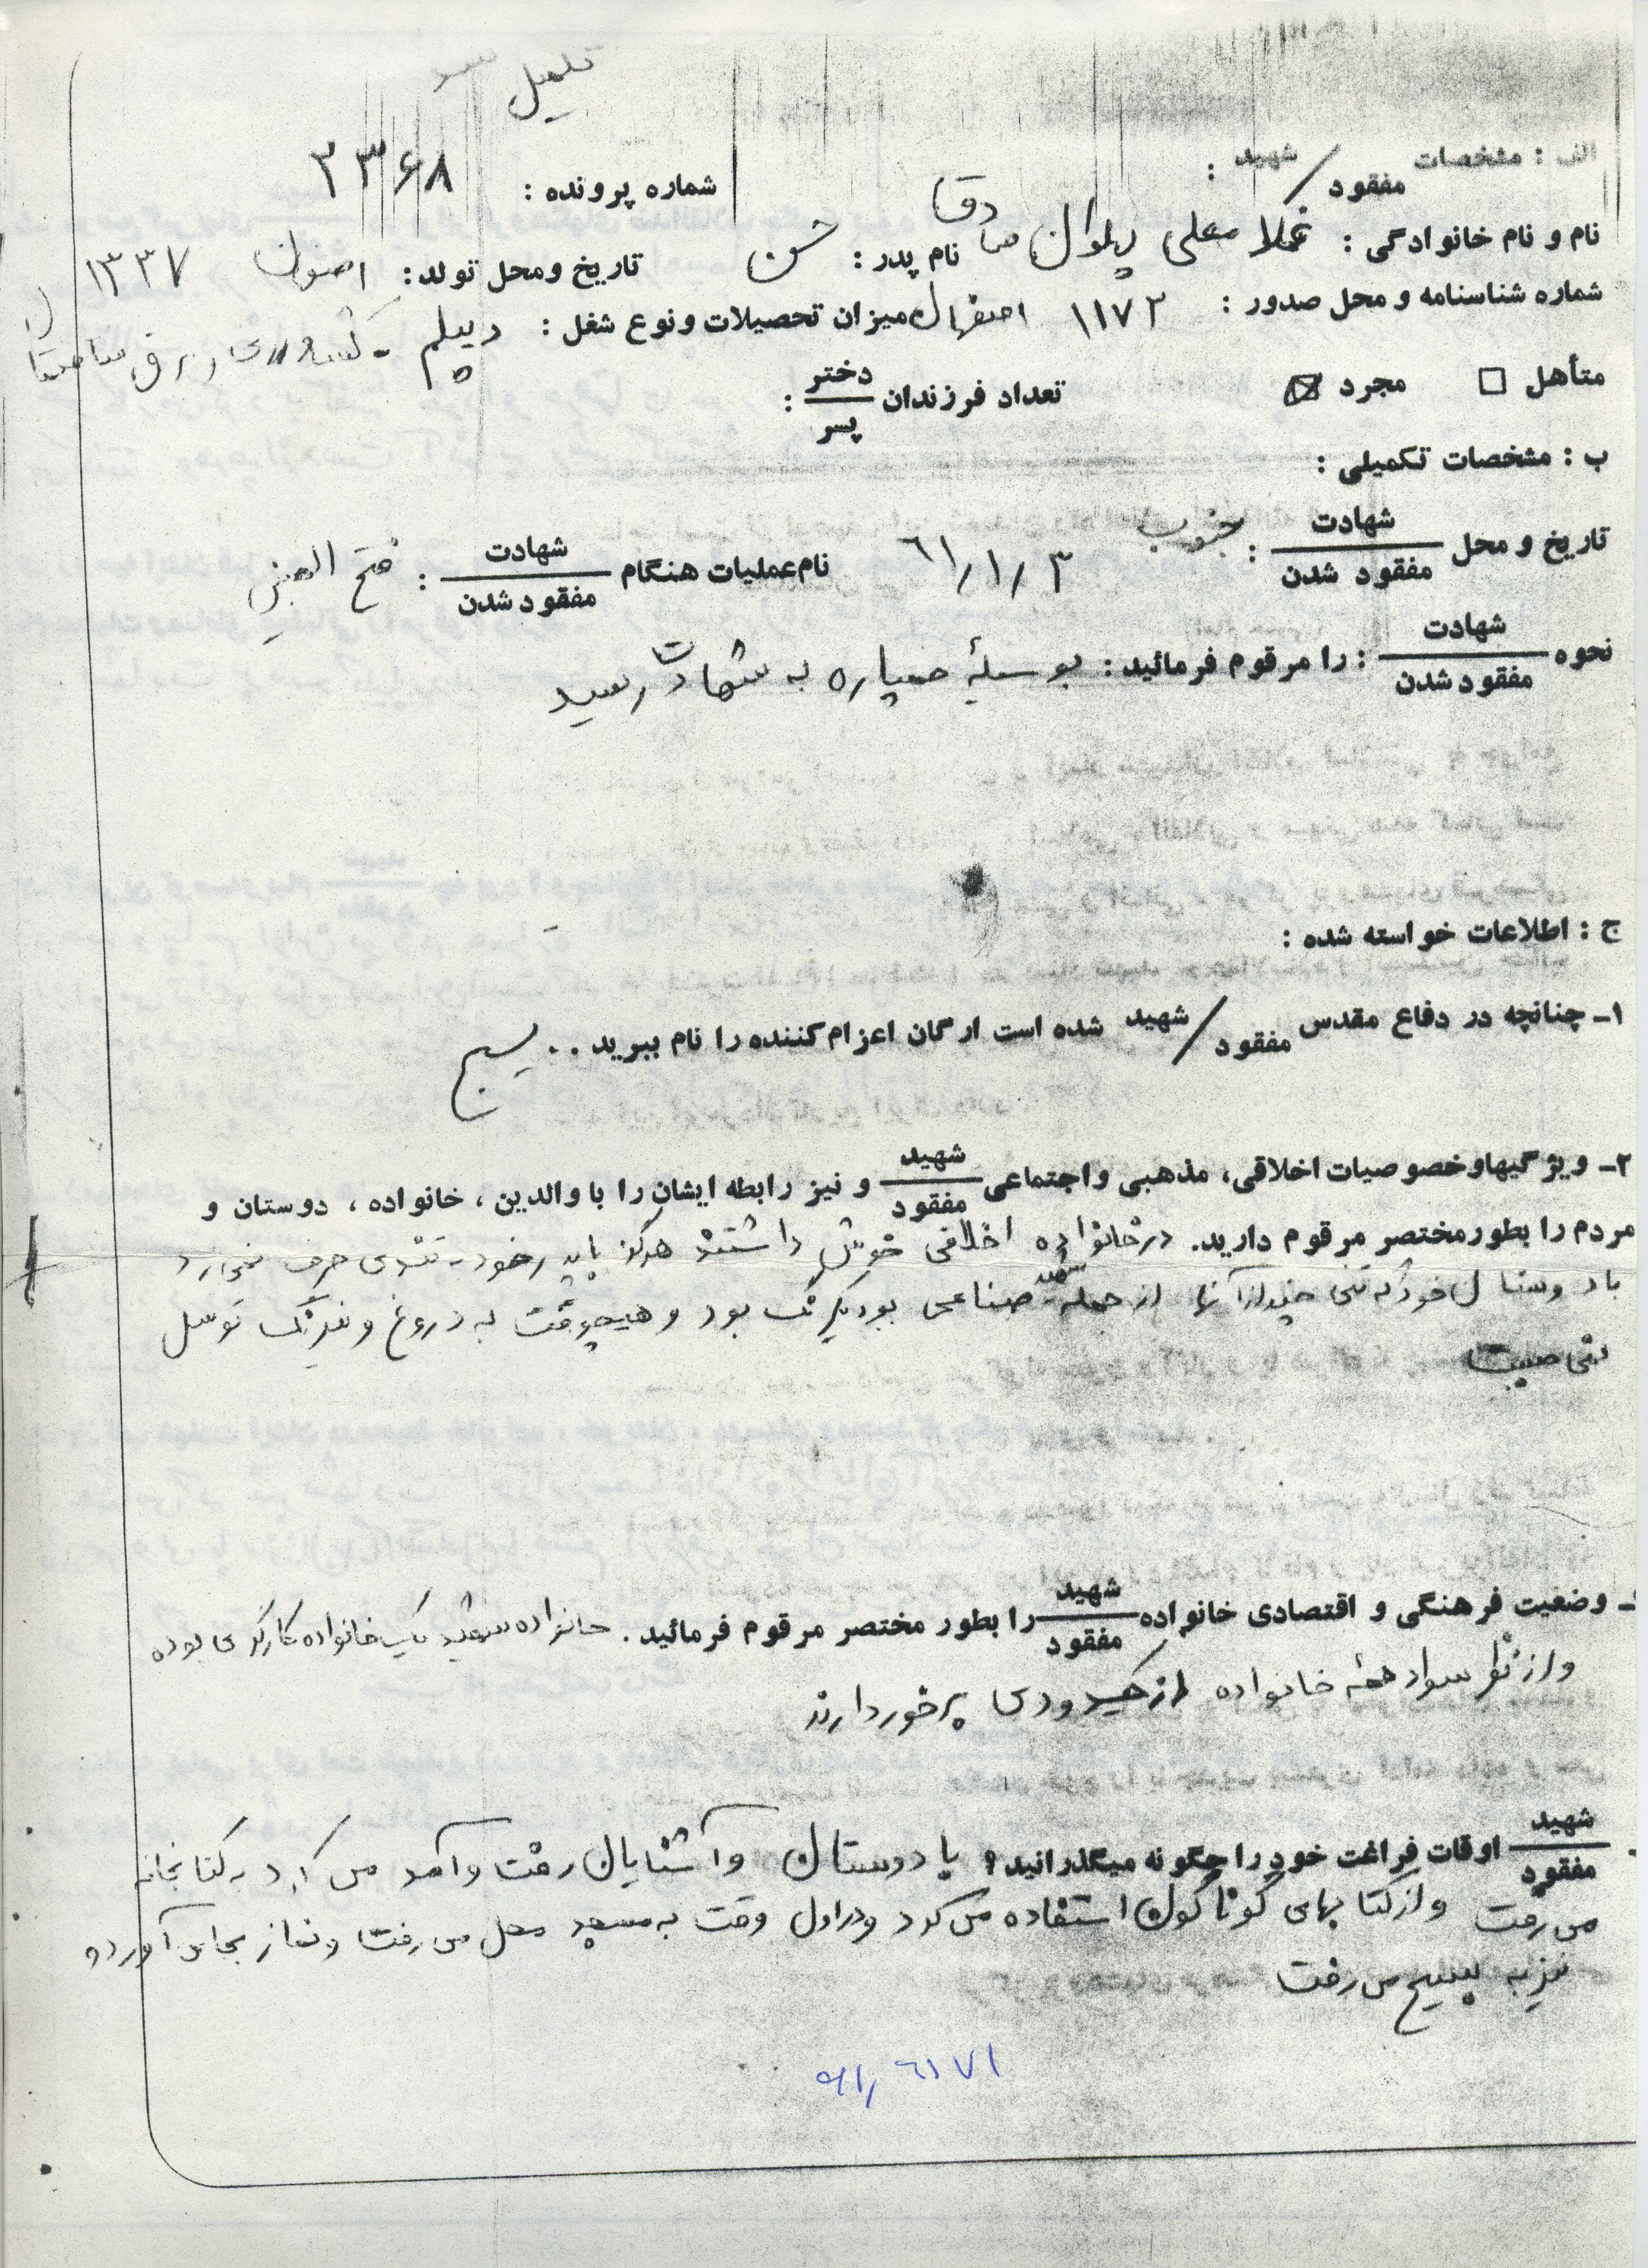 تکمیل شد
الف : مشخصات شهید / مفقود :
شماره پرونده : ۲۳۶۸
نام و نام خانوادگی : غلامعلی پهلوان صادق نام پدر : حسن تاریخ و محل تولد : اصفهان ۱۳۳۷
شماره شناسنامه و محل صدور : ۱۱۷۳ اصفهان میزان تحصیلات و نوع شغل : دیپلم - کشاورزی و برق ساختمان
متأهل □ مجرد ☒ تعداد فرزندان دختر / پسر :
ب : مشخصات تکمیلی :
تاریخ و محل شهادت / مفقود شدن : جنوب ۶۱/۱/۳ نام عملیات هنگام شهادت / مفقود شدن : فتح المبین
نحوه شهادت / مفقود شدن : را مرقوم فرمائید : بوسیلهٔ خمپاره به شهادت رسید
ج : اطلاعات خواسته شده :
۱ـ چنانچه در دفاع مقدس شهید / مفقود شده است ارگان اعزام کننده را نام ببرید . . بسیج
۲ـ ویژگیها و خصوصیات اخلاقی، مذهبی و اجتماعی شهید / مفقود و نیز رابطه ایشان را با والدین ، خانواده ، دوستان و
مردم را بطور مختصر مرقوم دارید. در خانواده اخلاقی خوش داشتند هرگز با پدر خود به تندی حرف نمی‌زد
با دوستان خود که تنی چند از آنها از جمله شهید صناعی بود یکرنگ بود و هیچوقت به دروغ و نیرنگ توسل
نمی جست
ـ وضعیت فرهنگی و اقتصادی خانواده شهید / مفقود را بطور مختصر مرقوم فرمائید . خانواده شهید یک خانواده کارگری بوده
و از نظر سواد همهٔ خانواده از حدودی برخوردارند
شهید / مفقود اوقات فراغت خود را چگونه میگذرانید؟ با دوستان و آشنایان رفت و آمد می کرد به کتابخانه
می رفت و از کتابهای گوناگون استفاده می کرد و در اول وقت به مسجد محل می رفت و نماز بجای آورده
نیز به بسیج می رفت